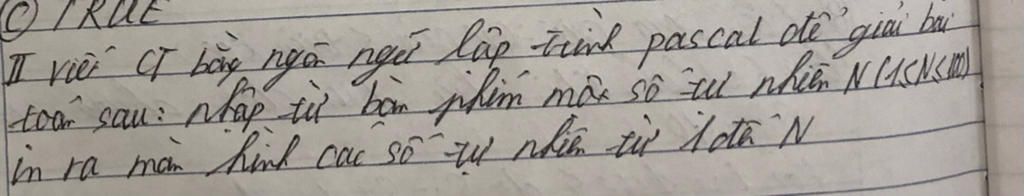 C) TRUE
II viết CT bằng ngôn ngữ lập trình pascal để giải bài
toán sau: nhập từ bàn phím một số tự nhiên N (1<N<100)
in ra màn hình các số tự nhiên từ 1 đến N